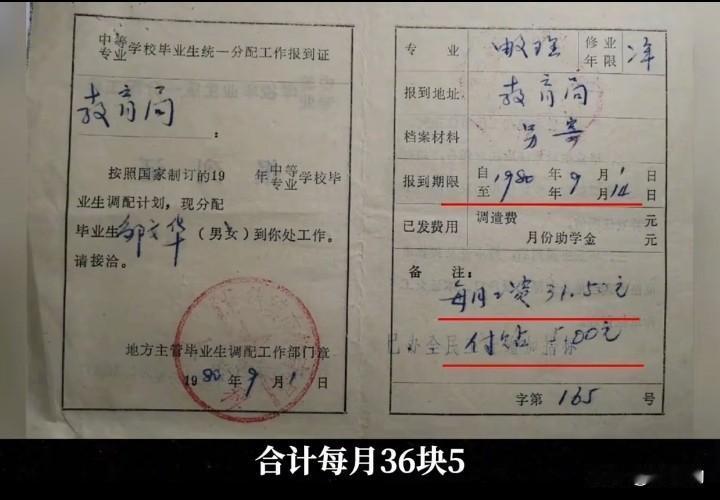 中等专业学校毕业生统一分配工作报到证
教育局
：
按照国家制订的19 年中等专业学校毕
业生调配计划，现分配
毕业生邹立华（男女）到你处工作。
请接洽。
地方主管毕业生调配工作部门章
1980年9月1日
专业 数理 修业年限
报到地址 教育局
档案材料 另寄
报到期限 自1980年9月1日
至 年9月14日
已发费用 调遣费 元
月份助学金 元
备注：
每月工资31.50元
付贴5.00元
字第165号
合计每月36块5